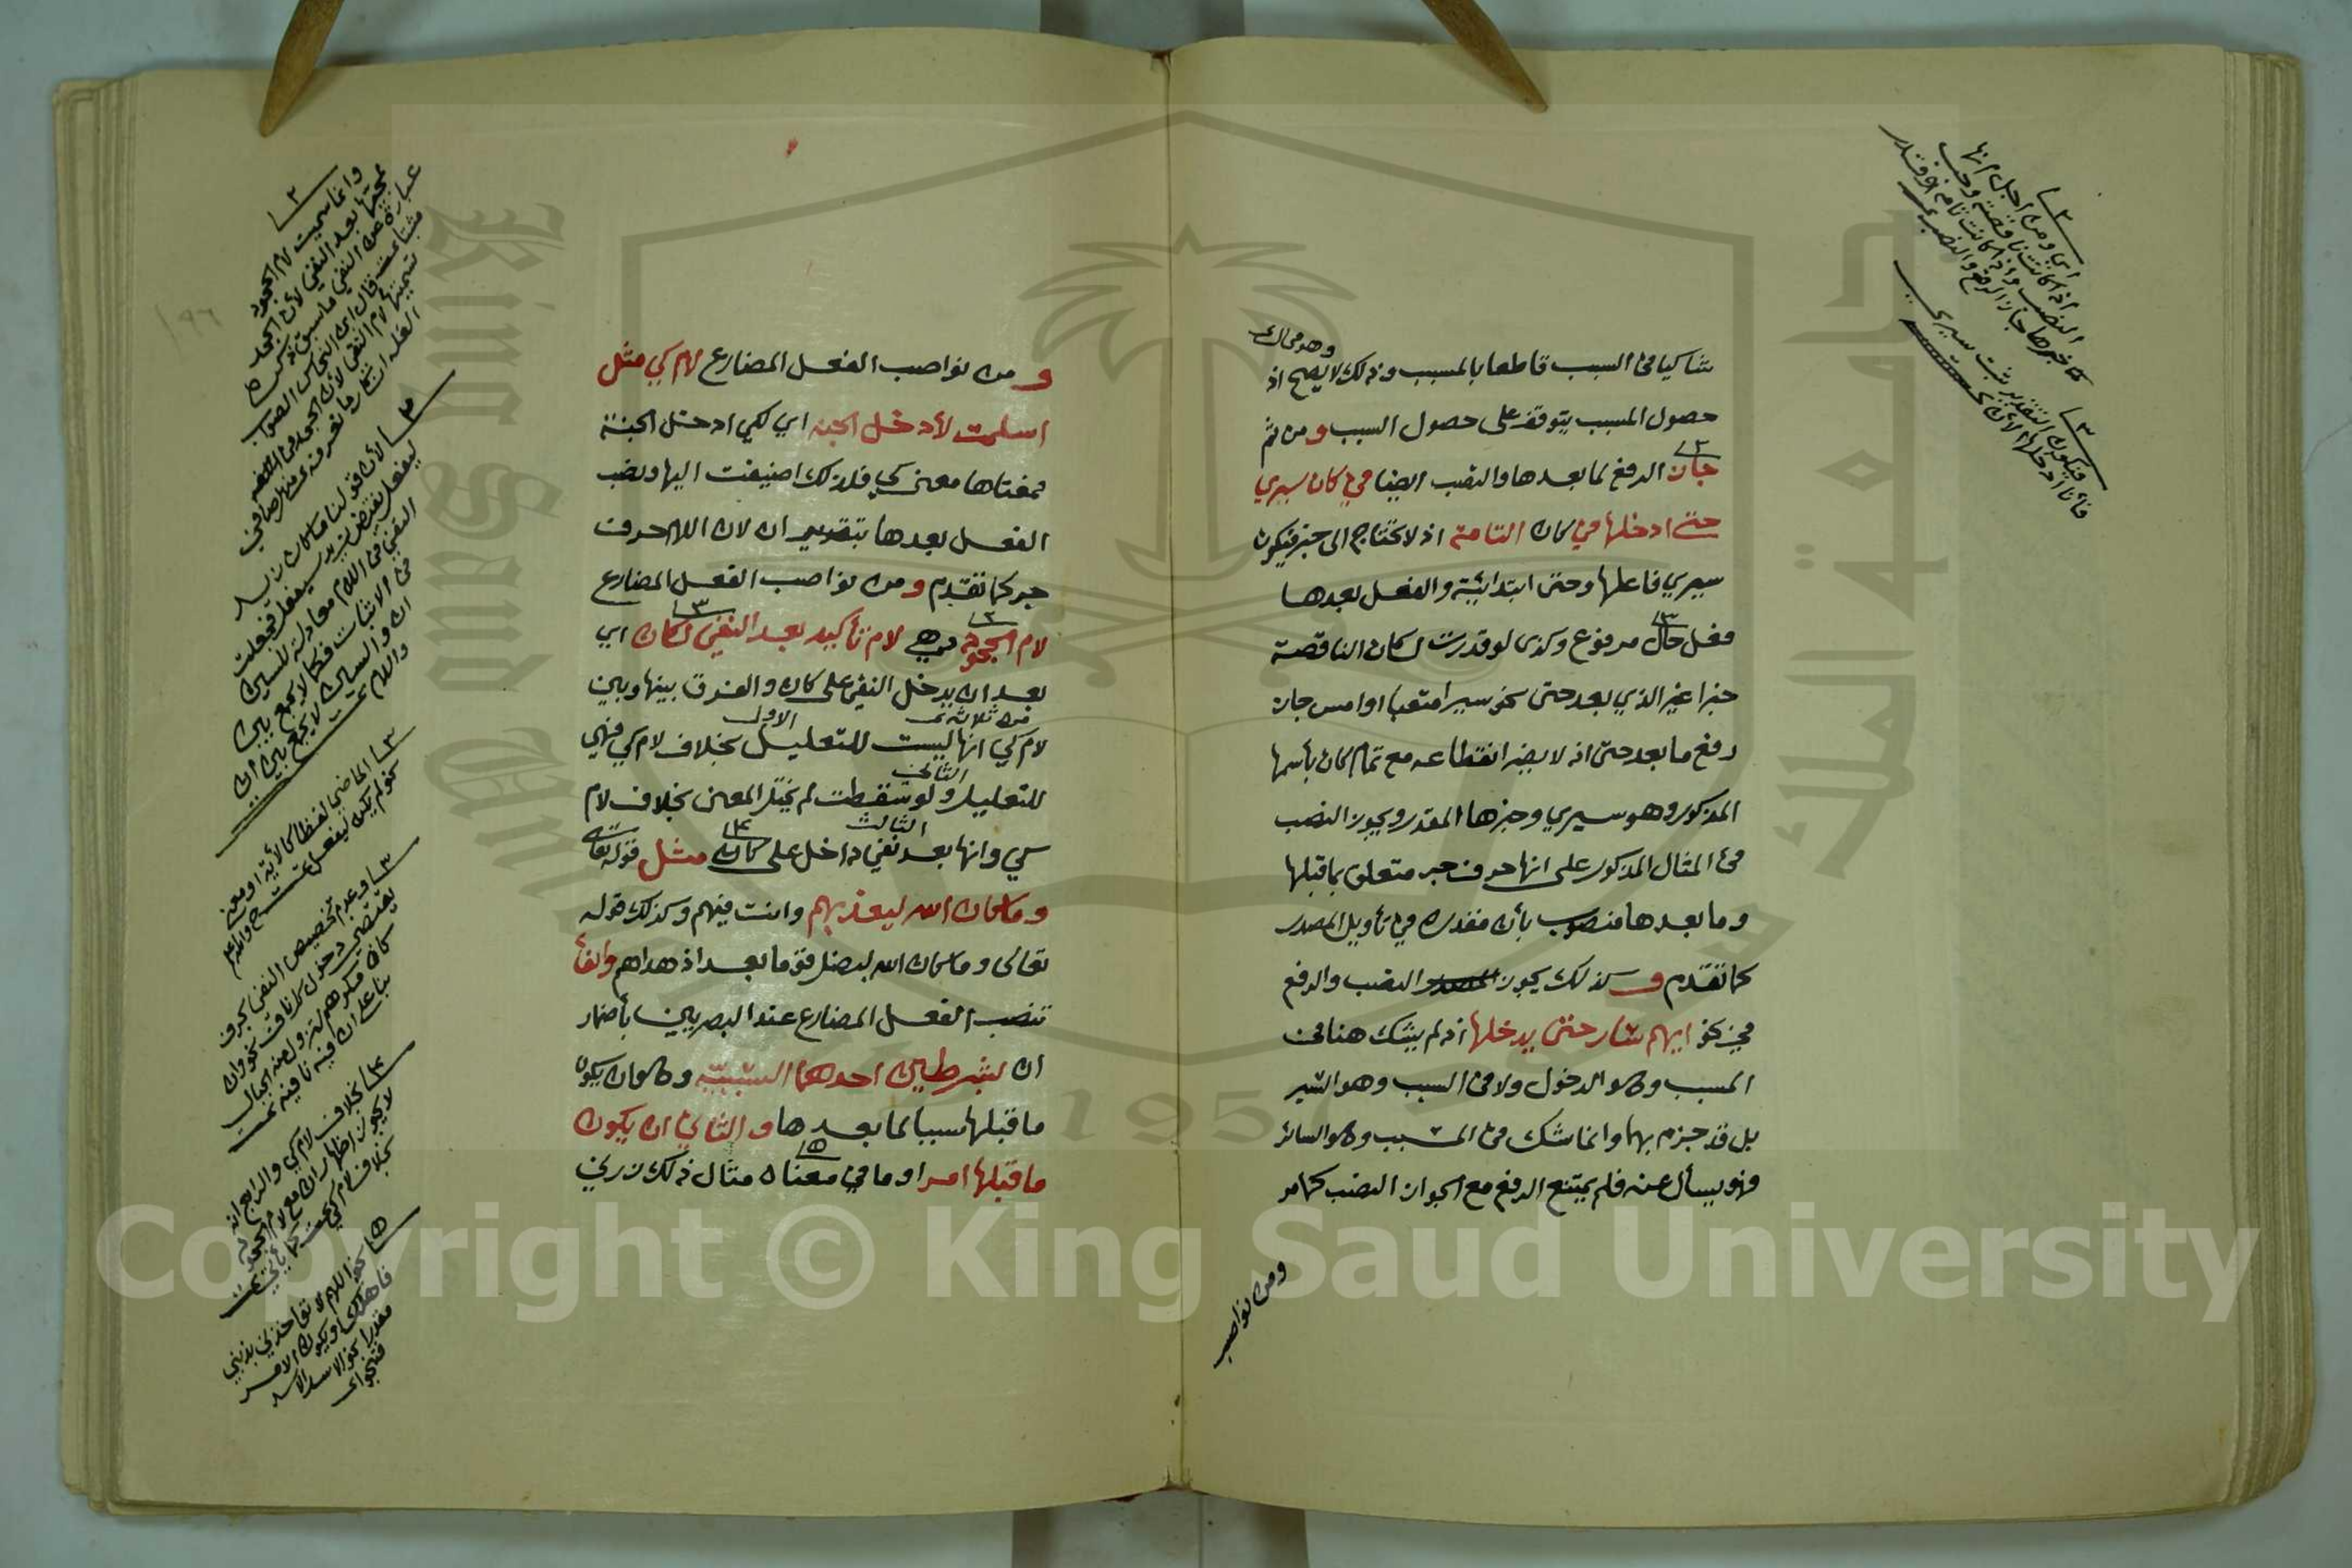 شاكيا في السبب قاطعا بالمسبب وذلك لا يصح اذ
وهو محال
حصول المسبب يتوقف على حصول السبب ومن ثم
جاز الرفع لما بعدها والنصب ايضا في كان سيري
حتى ادخلها في كان التامة اذ لا تحتاج الى خبر فيكون
سيري فاعلها وحتى ابتدائية والفعل بعدها
فعل حال مرفوع وكذى لو قدرت لكان الناقصة
خبرا غير الذي بعد حتى نحو سيرا متعبا او امس جاز
رفع ما بعد حتى اذ لا يضر انقطاعه مع تمام كان بأسمها
المذكور وهو سيري وخبرها المقدر ويجوز النصب
في المثال المذكور على انها حرف جر متعلق بما قبلها
وما بعدها منصوب بأن مقدرة في تأويل المصدر
كما تقدم وكذلك يجوز النصب والرفع
في نحو ايهم سار حتى يدخلها اذ لم يشك هنا في
المسبب وهو الدخول ولا في السبب وهو السير
بل قد جزم بهما وانما شك في المسبب وهو السائر
فهو يسأل عنه فلم يمتنع الرفع مع الجواز النصب كما مر
ومن نواصب
٢
اي ومن اجل انها
اذا كانت ناقصة وجب
النصب واذا كانت تامة او قدر
خبرها جاز الرفع والنصب
٣
فيكون التقدير ثبت سيري
فأنا ادخلها الأن
ومن نواصب الفعل المضارع لام كي مثل
اسلمت لأدخل الجنة اي لكي ادخل الجنة
فمعناها معنى كي فلذلك اضيفت اليها ونصب
الفعل بعدها بتقدير ان لان اللام حرف
جر كما تقدم ومن نواصب الفعل المضارع
لام الجحود وهي لام تأكيد بعد النفي لكان اي
بعد ان يدخل النفي على كان والفرق بينها وبين
من ثلاثة الاول
لام كي انها ليست للتعليل بخلاف لام كي فهي
الثاني
للتعليل ولو سقطت لم يختل المعنى بخلاف لام
الثالث
كي وانها بعد نفي داخل على كان مثل قوله تعالى
وما كان الله ليعذبهم وانت فيهم وكذلك قوله
تعالى وما كان الله ليضل قوما بعد اذ هداهم والفاء
تنصب الفعل المضارع عند البصريين بأضمار
ان بشرطين احدهما السببية وهو ان يكون
ما قبلها سببا لما بعدها والثاني ان يكون
ما قبلها امرا او ما في معناه مثال ذلك زرني
٢
وانما سميت لام الجحود
لمجيئها بعد النفي لأن الجحد
عبارة عن النفي ما سبق ذكره
قال ابن النحاس الصواب
تسميتها لام النفي لأن الجحد في اللغة
انكار ما تعرفه
٣
لأن قولنا ما كان زيد
ليفعل نقيض زيد سيفعل فجعلت
النفي في اللام معادلة للسين
في الاثبات فكما لا يجمع بين
ان والسين لا يجمع بين ان
واللام
٣
الماضي لفظا كالأية او معنى
نحو لم يكن ليفعل
٣
وعدم تخصيص النفي بحرف
يقتضي دخول كل ناف نحو وان
كان مكرهم لتزول منه الجبال
بناء على ان فيه نافية
٤
بخلاف لام كي والرابع انه
لا يجوز اظهار ان مع لام الجحود
بخلاف لام كي كما يأتي
٥
نحو اللهم لا تؤاخذني بذنبي
فأهلك او يكون الامر
مقدرا نحو الاسد الاسد
فتنجو
١٩٦
King Saud University
جامعة الملك سعود
1957
Copyright © King Saud University